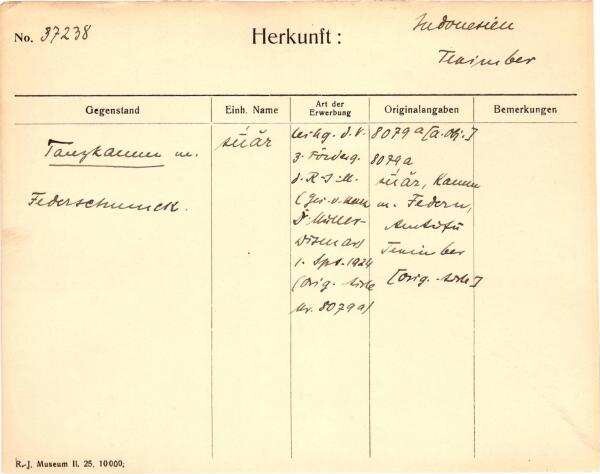 No. 37238
Herkunft:
Indonesien
Tenimber
Gegenstand
Einh. Name
Art der
Erwerbung
Originalangaben
Bemerkungen
Tanzkamm m.
Federschmuck.
súär
Leihg. d. V.
z. Förderg.
d. R-J-M.
(Ges. v. Herrn
Dr. Müller-
Wismar)
1. Spt. 1924
(orig. Liste
Nr. 8079a)
8079a [a. Obj.]
8079a
súär, Kamm
m. Federn,
Tenimber
[orig. Liste]
R.-J. Museum II. 25. 10000;